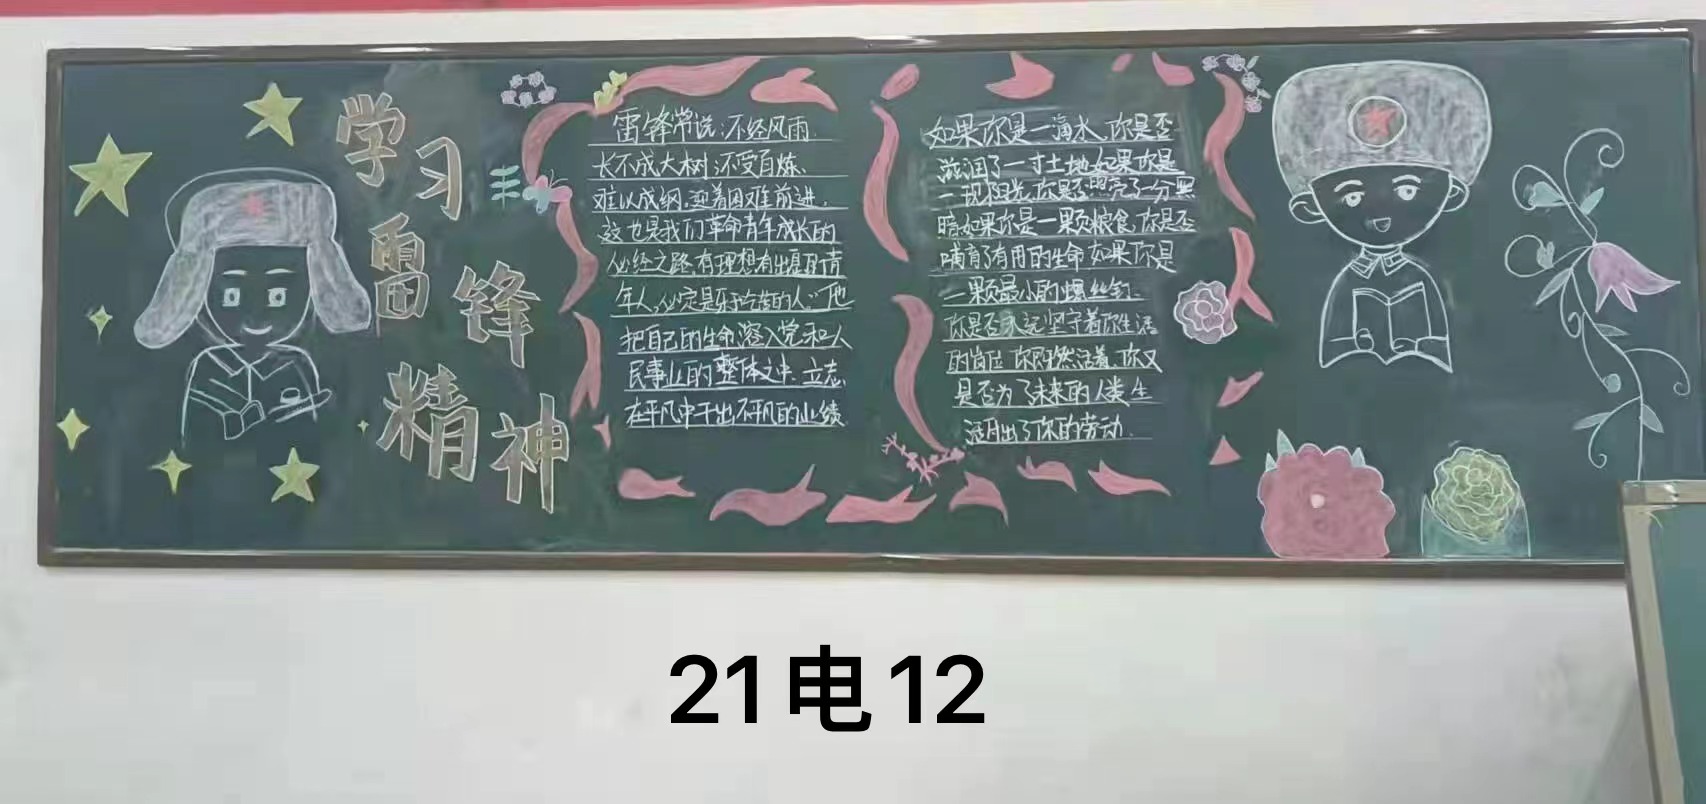 学习
雷锋
精神
雷锋常说:不经风雨
长不成大树,不受百炼、
难以成钢,迎着困难前进,
这也是我们革命青年成长的
必经之路,有理想有出息的青
年人,必定是乐于吃苦的人”他
把自己的生命溶入党和人
民事业的整体之中、立志
在平凡中干出不平凡的业绩
如果你是一滴水,你是否
滋润了一寸土地如果你是
一观阳光,你是否照亮了一分黑
暗如果你是一颗粮食,你是否
哺育了有用的生命如果你是
一颗最小的螺丝钉、
你是否永远坚守着你生活
的岗位 你既然活着、你又
是否为了未来的人类生
活付出了你的劳动、
21电12